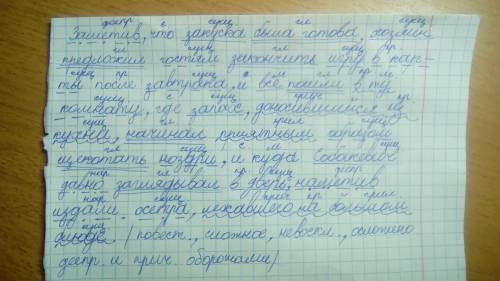 деепр. с сущ гл. сущ
Заметив, что закуска была готова, хозяин
гл сущ гл сущ пр.
предложил гостям закончить игру в кар-
сущ пр сущ с м гл пр м
ты после завтрака, и все пошли в ту
сущ с сущ прич пр.
комнату, где запах, доносившийся из
сущ гл прил сущ
кухни, начинал приятным образом
гл сущ с м сущ
щекотать ноздри, и куда Собакевич
нар гл пр сущ деепр
давно заглядывал в дверь, наметив
нар сущ прич пр прил
издали осетра, лежавшего на большом
сущ
блюде. (повест., сложное, невоскл., осложнено
деепр. и прич. оборотами)